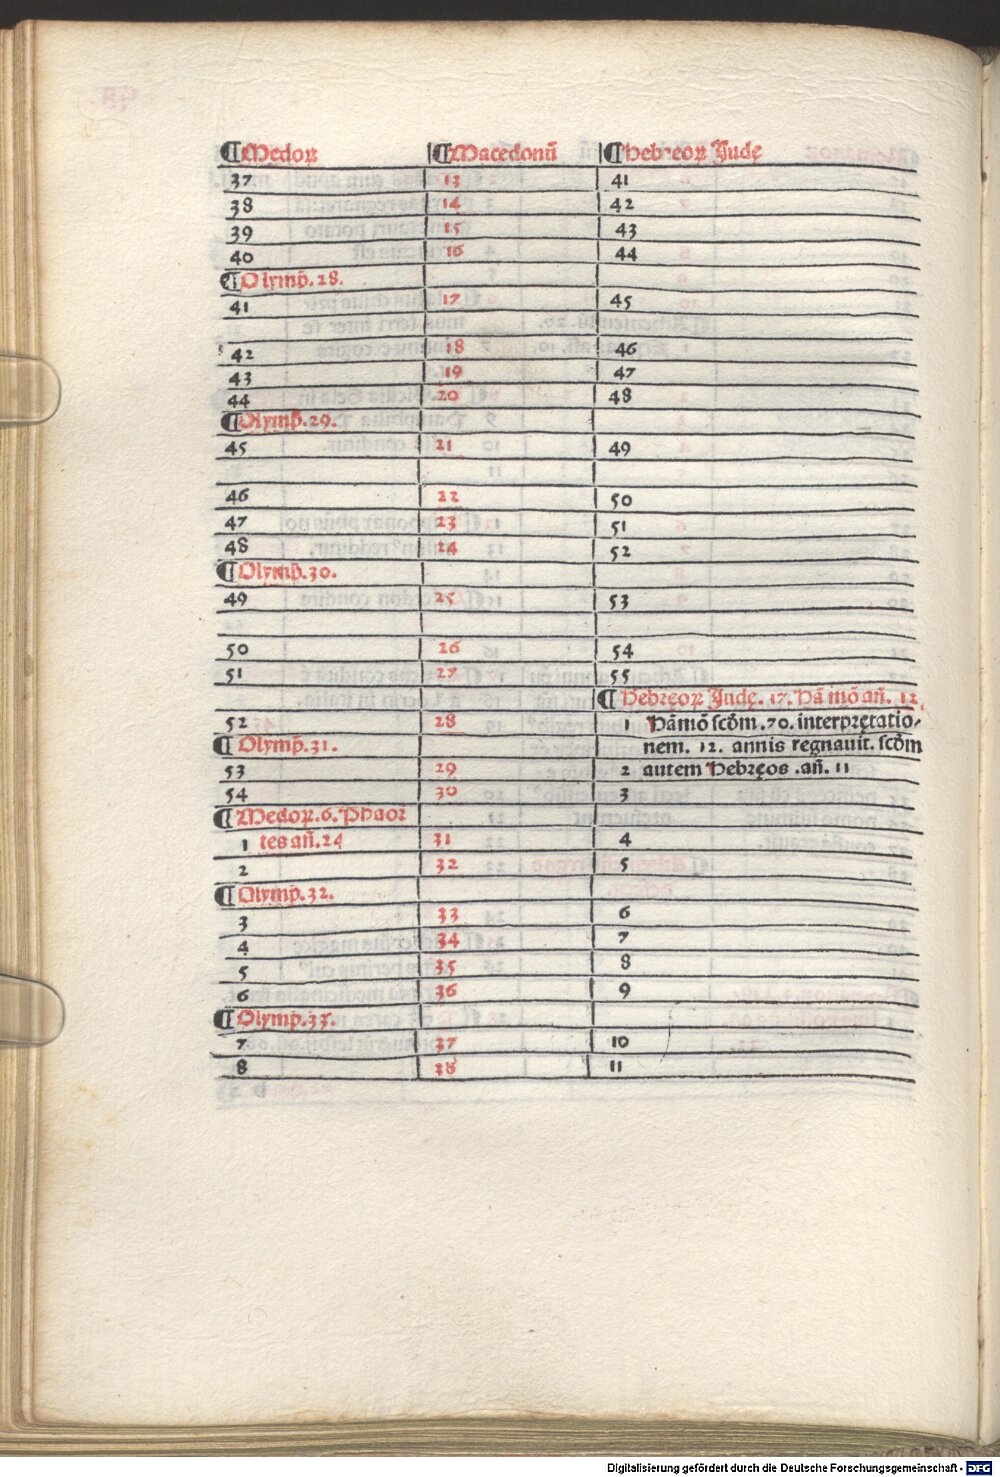 ¶Medoꝝ ¶Macedonū ¶Hebreoꝝ Judę
37 13 41
38 14 42
39 15 43
40 16 44
¶Olymp̄.28.
41 17 45
42 18 46
43 19 47
44 20 48
¶Olymp̄.29.
45 21 49
46 22 50
47 23 51
48 24 52
¶Olymp̄.30.
49 25 53
50 26 54
51 27 55
¶Hebręoꝝ Judę.17.Hā mō añ.12.
52 28 1 Hāmō scōm.70.interpretatio⸗
¶Olymp̄.31. nem.12. annis regnauit.scōm
53 29 2 autem Hebręos.añ.11
54 30 3
¶Medoꝝ.6.Phaor
1 tes añ.24 31 4
2 32 5
¶Olymp̄.32.
3 33 6
4 34 7
5 35 8
6 36 9
¶Olymp̄.33.
7 37 10
8 38 11
Digitalisierung gefördert durch die Deutsche Forschungsgemeinschaft - DFG